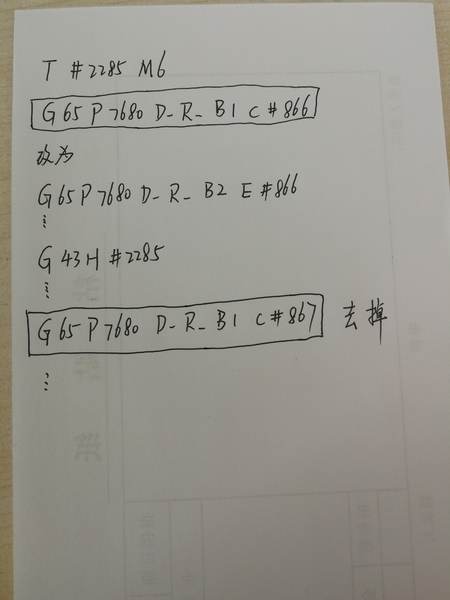 T #2285 M6
G65 P7680 D_ R_ B1 C#866
改为
G65P7680 D_ R_ B2 E#866
⋮
G43H #2285
⋮
G65 P7680 D_ R_ B1 C#867 去掉
⋮